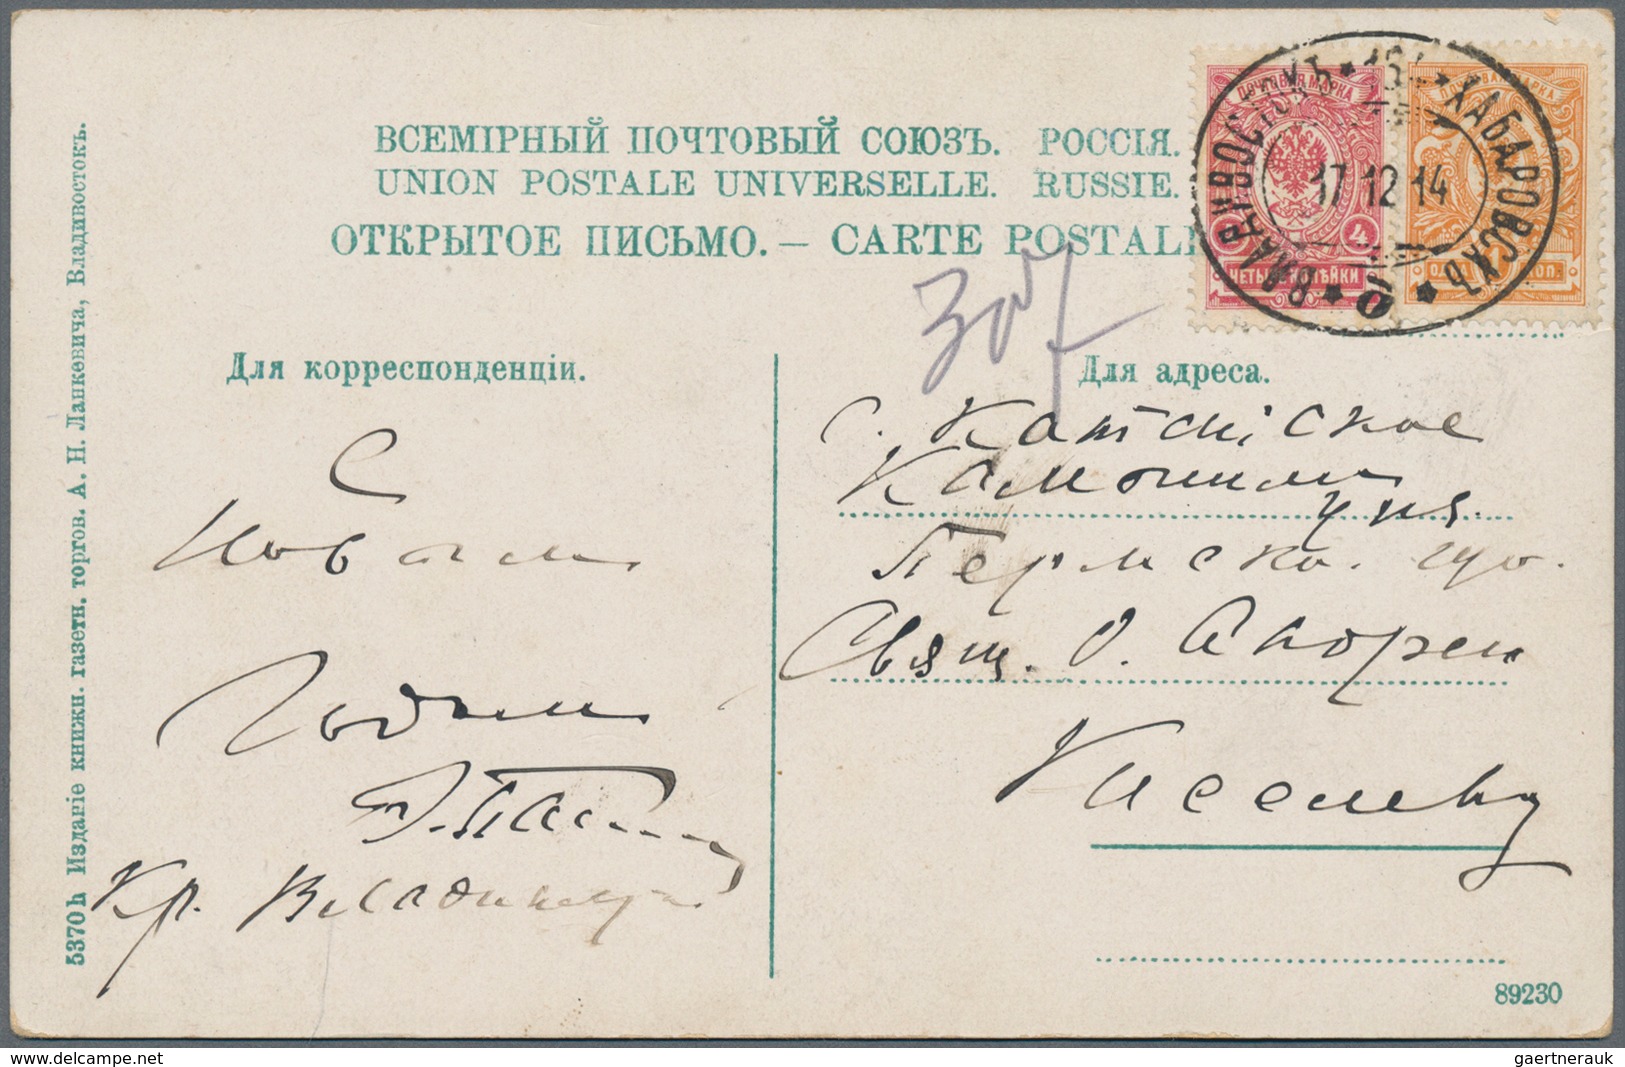 ВСЕМІРНЫЙ ПОЧТОВЫЙ СОЮЗЪ. РОССІЯ.
UNION POSTALE UNIVERSELLE. RUSSIE.
ОТКРЫТОЕ ПИСЬМО. — CARTE POSTALE
ПОЧТОВАЯ МАРКА
4
ЧЕТЫРЕ КОПѢЙКИ
ПОЧТОВАЯ МАРКА
ВЛАДИВОСТОКЪ * 151 * ХАБАРОВСКЪ * б *
17 12 14
307
Для корреспонденціи.
Для адреса.
С
Новым
Годом
Кр. Владимир
с. Катайское
Камышл
Пермско. гу.
Свящ. О. Андрею
Киселеву
5370 h Изданіе книжн. газетн. торгов. А. Н. Лапкевича, Владивостокъ.
89230
delcampe.net
gaertnerauk